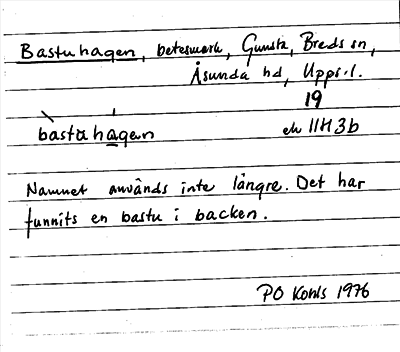 Bastuhagen, betesmark, Gunsta, Breds sn,
Åsunda hd, Upps.l.
19
bastahagen ek 11H3b
Namnet används inte längre. Det har
funnits en bastu i backen.
PO Kohls 1976